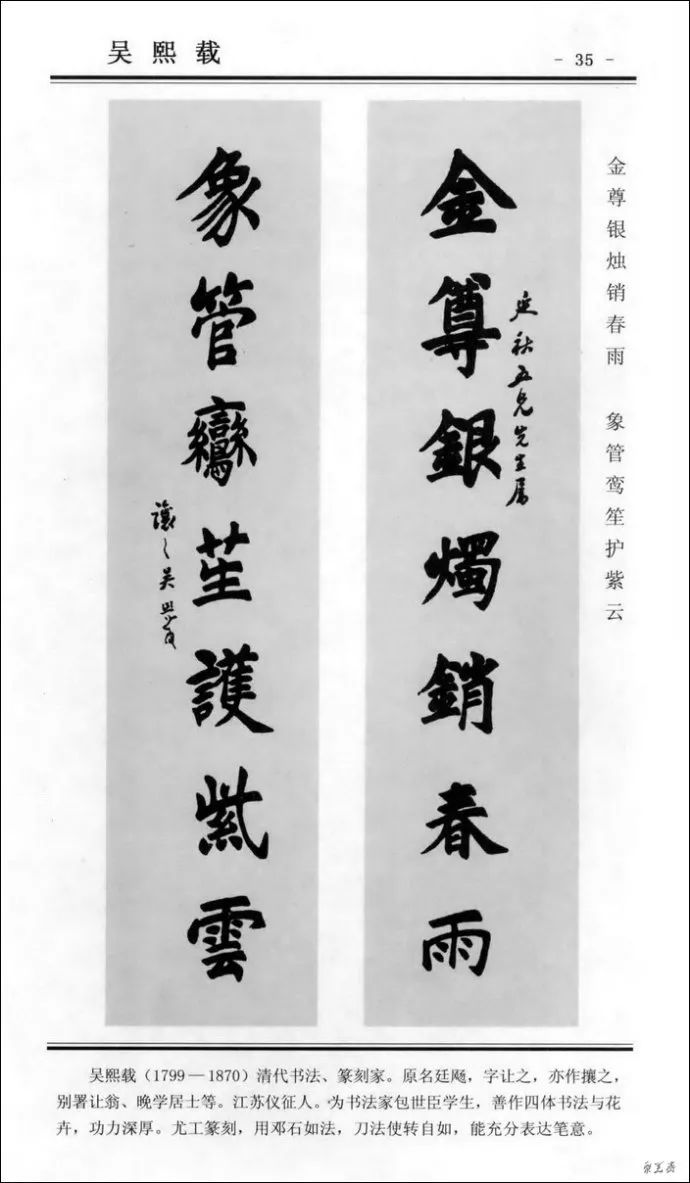 吴熙载
- 35 -
金尊银烛销春雨 象管鸾笙护紫云
金尊銀燭銷春雨
秋五兄先生属
象管鸞笙護紫雲
讓之吴熙載
吴熙载（1799—1870）清代书法、篆刻家。原名廷飏，字让之，亦作攘之，
别署让翁、晚学居士等。江苏仪征人。为书法家包世臣学生，善作四体书法与花
卉，功力深厚。尤工篆刻，用邓石如法，刀法使转自如，能充分表达笔意。